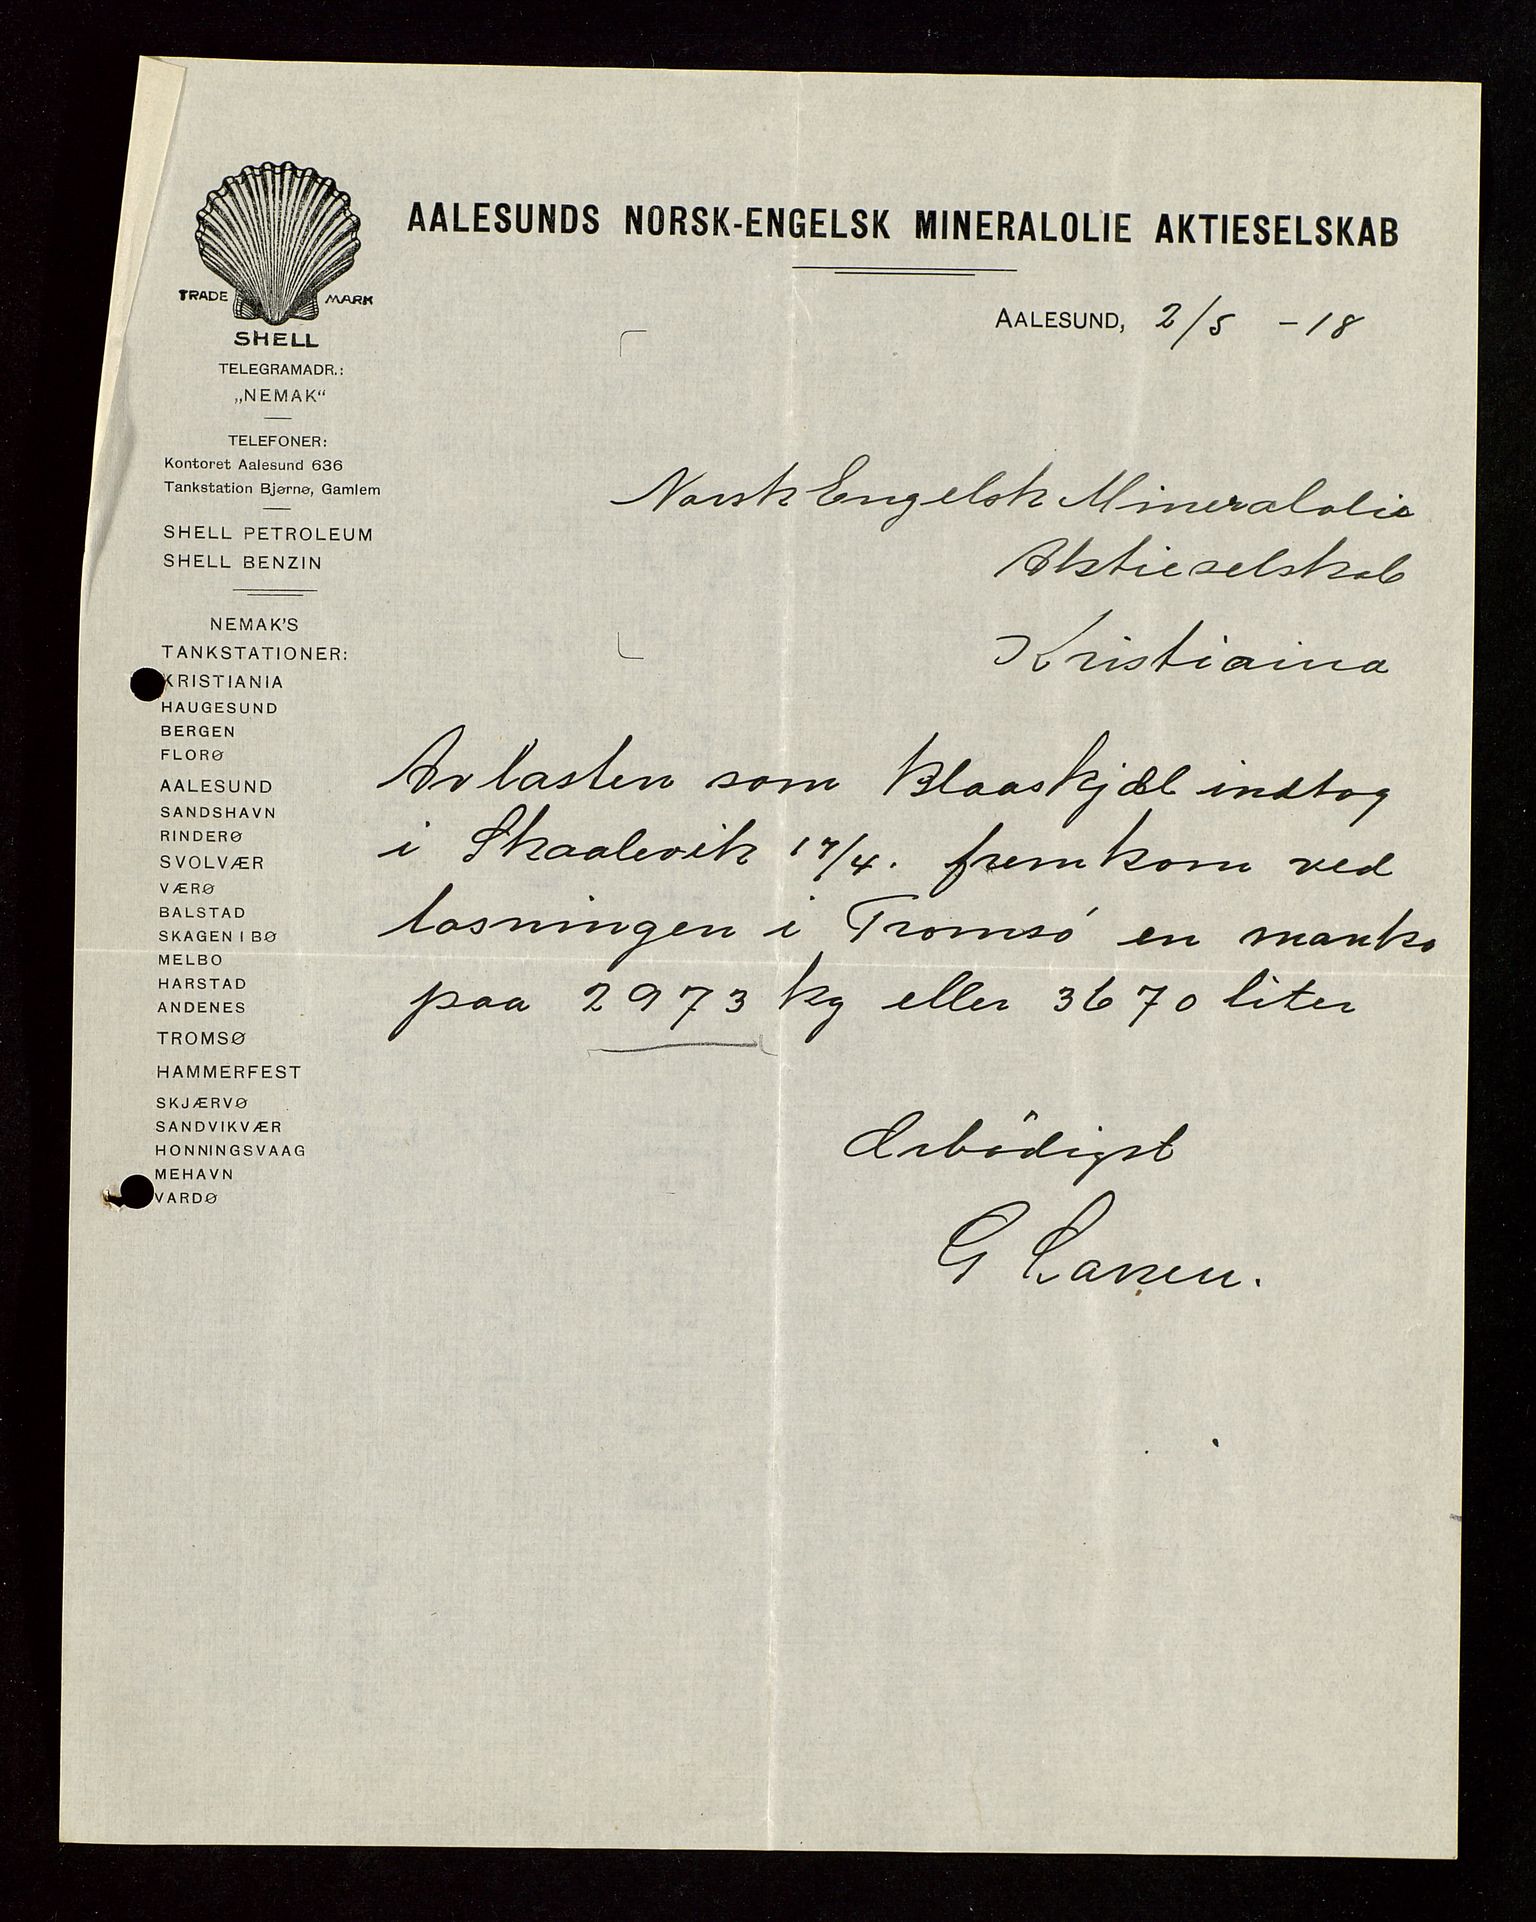 AALESUNDS NORSK-ENGELSK MINERALOLIE AKTIESELSKAB
TRADE MARK
SHELL
TELEGRAMADR.:
„NEMAK“
TELEFONER:
Kontoret Aalesund 636
Tankstation Bjørnø, Gamlem
SHELL PETROLEUM
SHELL BENZIN
NEMAK'S
TANKSTATIONER:
KRISTIANIA
HAUGESUND
BERGEN
FLORØ
AALESUND
SANDSHAVN
RINDERØ
SVOLVÆR
VÆRØ
BALSTAD
SKAGEN I BØ
MELBO
HARSTAD
ANDENES
TROMSØ
HAMMERFEST
SKJÆRVØ
SANDVIKVÆR
HONNINGSVAAG
MEHAVN
VARDØ
AALESUND, 2/5 -18
Norsk Engelsk Mineralolie
Aktieselskab
Kristiaina
Av lasten som Blaaskjæl indtog
i Skaalevik 17/4. fremkom ved
losningen i Tromsö en manko
paa 2973 kg eller 3670 liter
Ærbödigst
G Larsen.